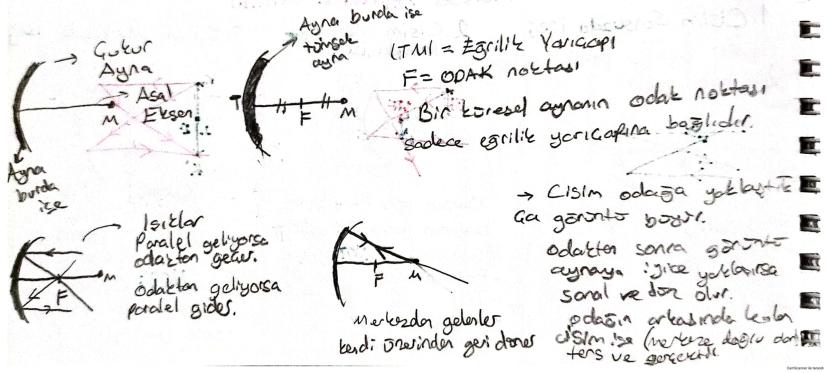 Çukur
Ayna
Asal
Eksen
M
Ayna
burda
ise
Ayna burda ise
tümsek
ayna
T
F
M
|TM| = Eğrilik Yarıçapı
F = ODAK noktası
Bir küresel aynanın odak noktası
sadece eğrilik yarıçapına bağlıdır.
Işıklar
Paralel geliyorsa
odaktan geçer.
odaktan geliyorsa
paralel gider.
F
M
F
M
Merkezden gelenler
kendi üzerinden geri döner
→ Cisim odağa yaklaştık
ça görüntü büyür.
odaktan sonra görüntü
aynaya iyice yaklaşırsa
sanal ve düz olur.
odağın arkasında kalan
cisim ise (merkeze doğru
ters ve gerçektir.